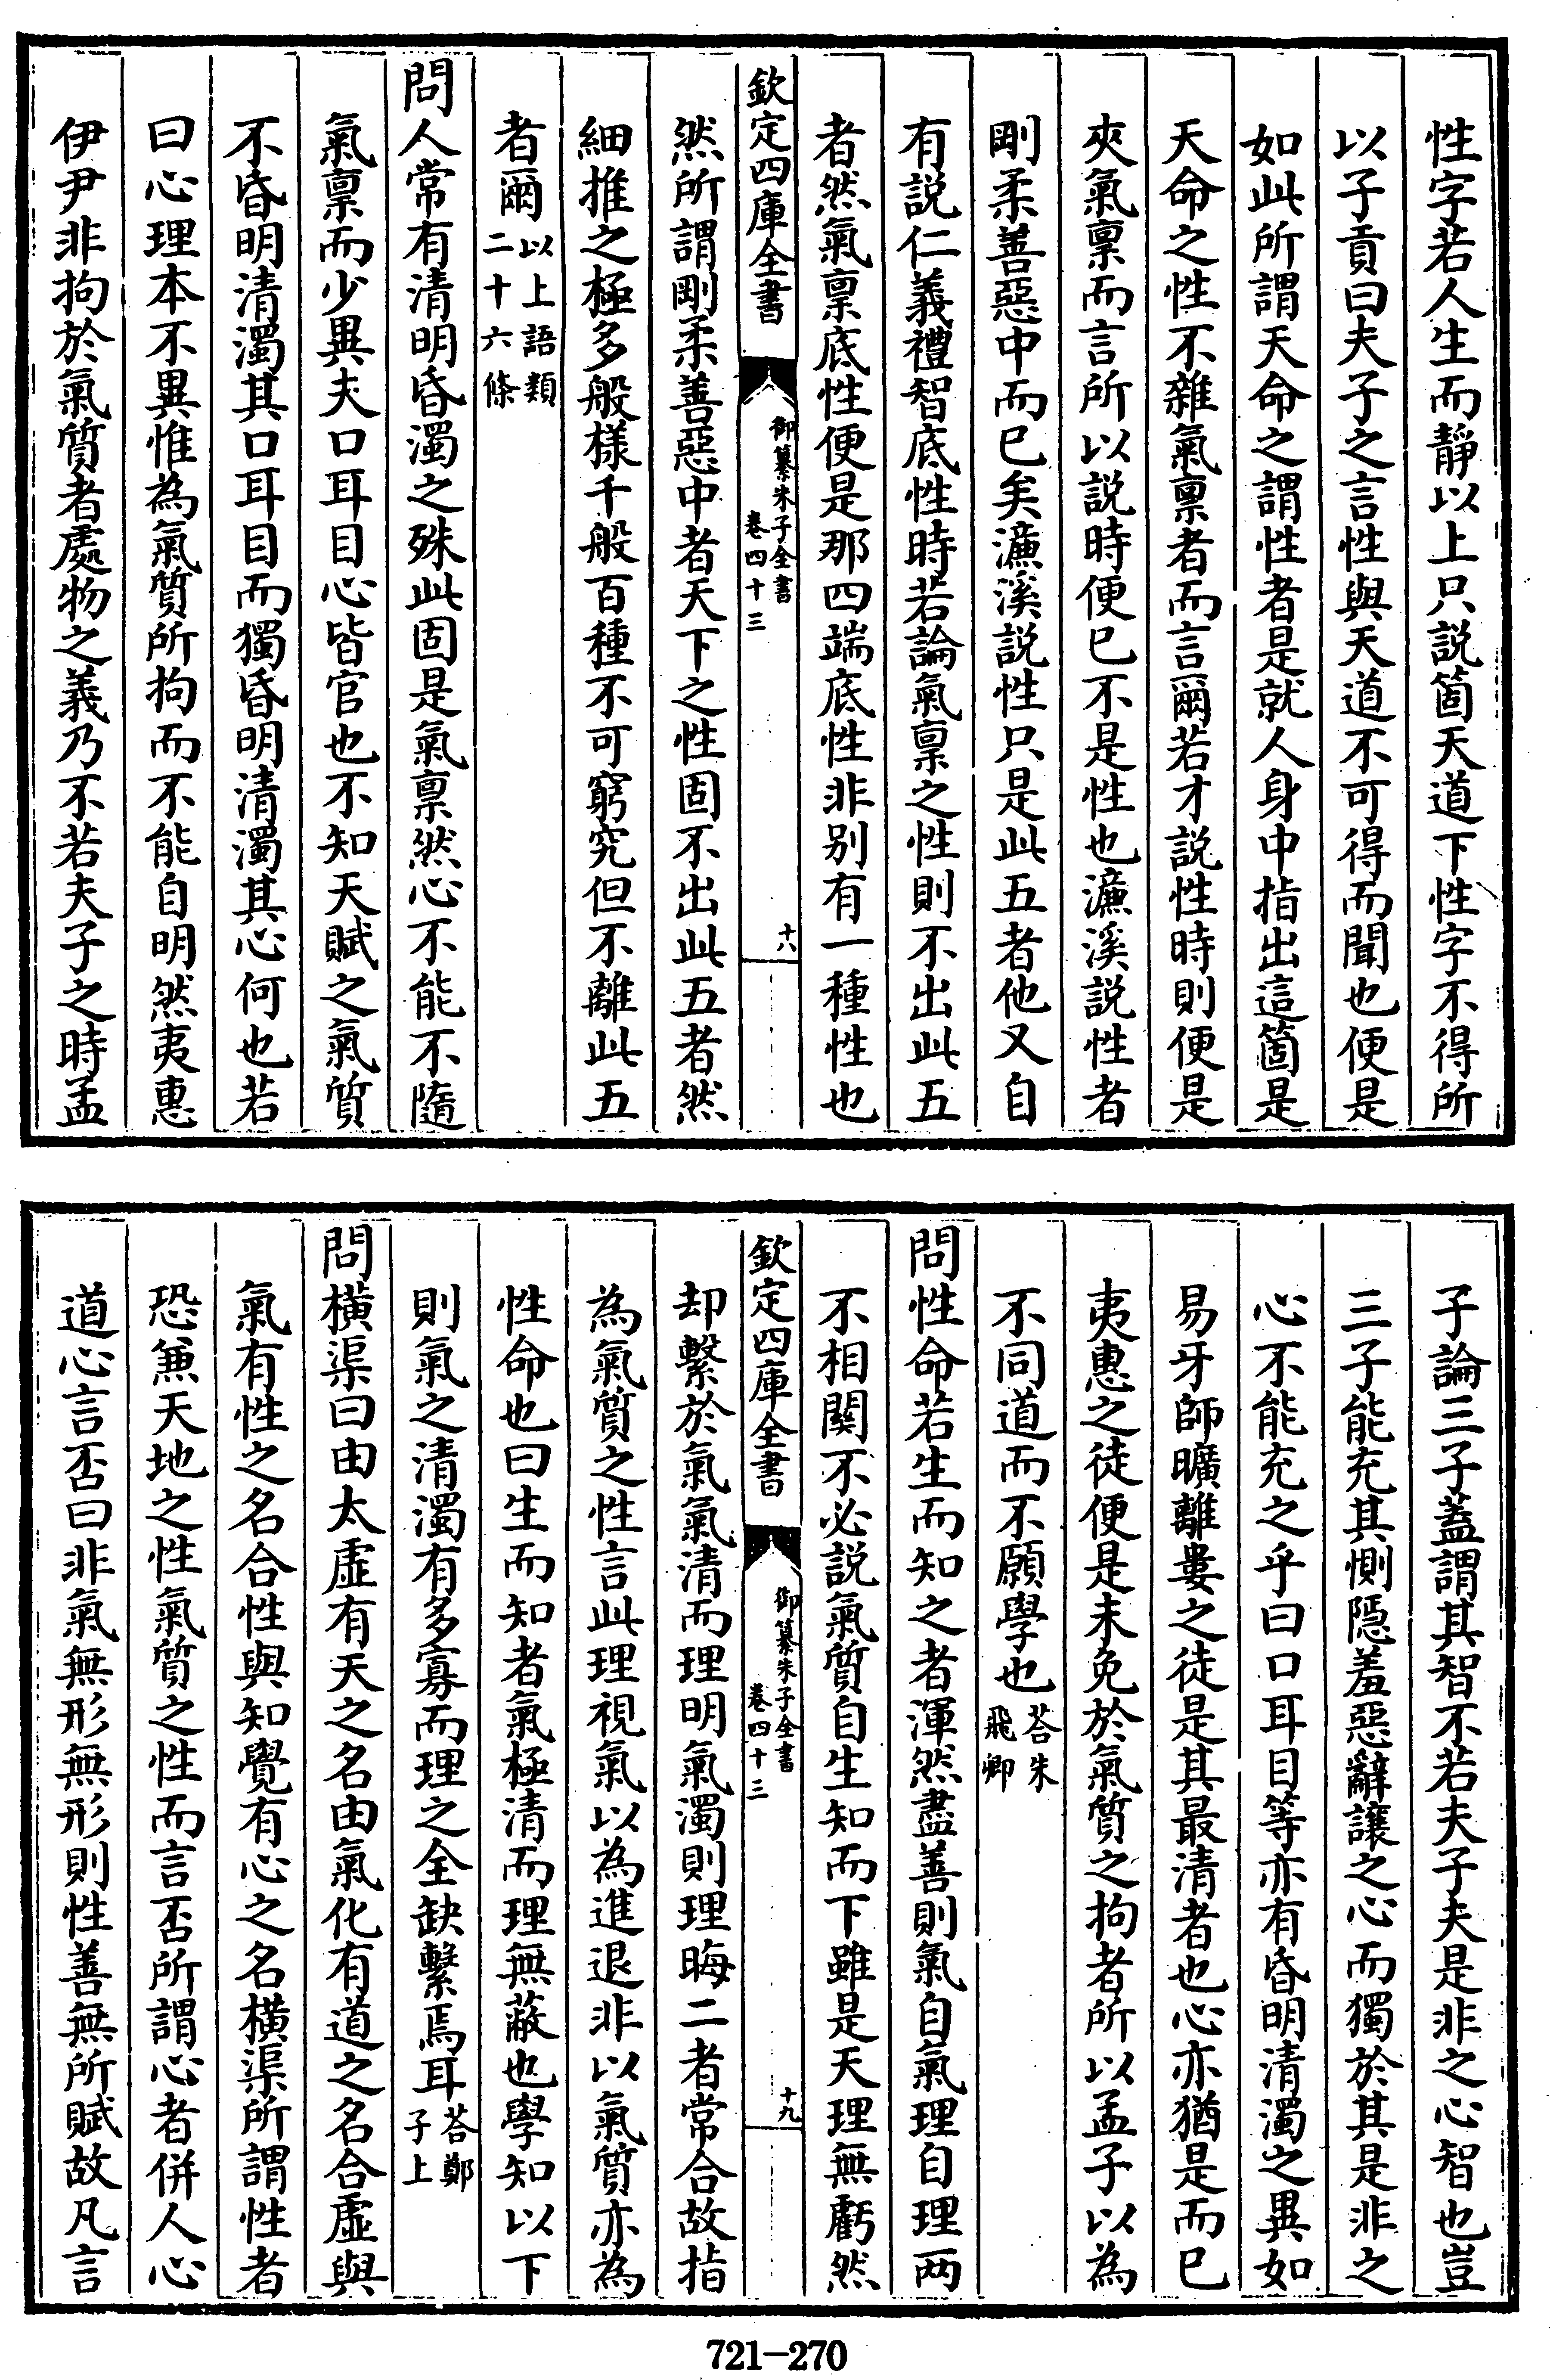 性字若人生而靜以上只説箇天道下性字不得所
以子貢曰夫子之言性與天道不可得而聞也便是
如此所謂天命之謂性者是就人身中指出這箇是
天命之性不雜氣禀者而言爾若才説性時則便是
夾氣禀而言所以説時便已不是性也濂溪説性者
剛柔善惡中而已矣濂溪説性只是此五者他又自
有説仁義禮智底性時若論氣禀之性則不出此五
者然氣禀底性便是那四端底性非别有一種性也
欽定四庫全書
御纂朱子全書
卷四十三
十八
然所謂剛柔善惡中者天下之性固不出此五者然
細推之極多般樣千般百種不可窮究但不離此五
者爾以上語類二十六條
問人常有清明昏濁之殊此固是氣禀然心不能不隨
氣禀而少異夫口耳目心皆官也不知天賦之氣質
不昏明清濁其口耳目而獨昏明清濁其心何也若
曰心理本不異惟為氣質所拘而不能自明然夷惠
伊尹非拘於氣質者處物之義乃不若夫子之時孟
子論三子蓋謂其智不若夫子夫是非之心智也豈
三子能充其惻隱羞惡辭讓之心而獨於其是非之
心不能充之乎曰口耳目等亦有昏明清濁之異如
易牙師曠離婁之徒是其最清者也心亦猶是而已
夷惠之徒便是未免於氣質之拘者所以孟子以為
不同道而不願學也荅朱飛卿
問性命若生而知之者渾然盡善則氣自氣理自理两
不相關不必説氣質自生知而下雖是天理無虧然
欽定四庫全書
御纂朱子全書
卷四十三
十九
却繫於氣氣清而理明氣濁則理晦二者常合故指
為氣質之性言此理視氣以為進退非以氣質亦為
性命也曰生而知者氣極清而理無蔽也學知以下
則氣之清濁有多寡而理之全缺繫焉耳荅鄭子上
問横渠曰由太虚有天之名由氣化有道之名合虚與
氣有性之名合性與知覺有心之名横渠所謂性者
恐兼天地之性氣質之性而言否所謂心者併人心
道心言否曰非氣無形無形則性善無所賦故凡言
721-270